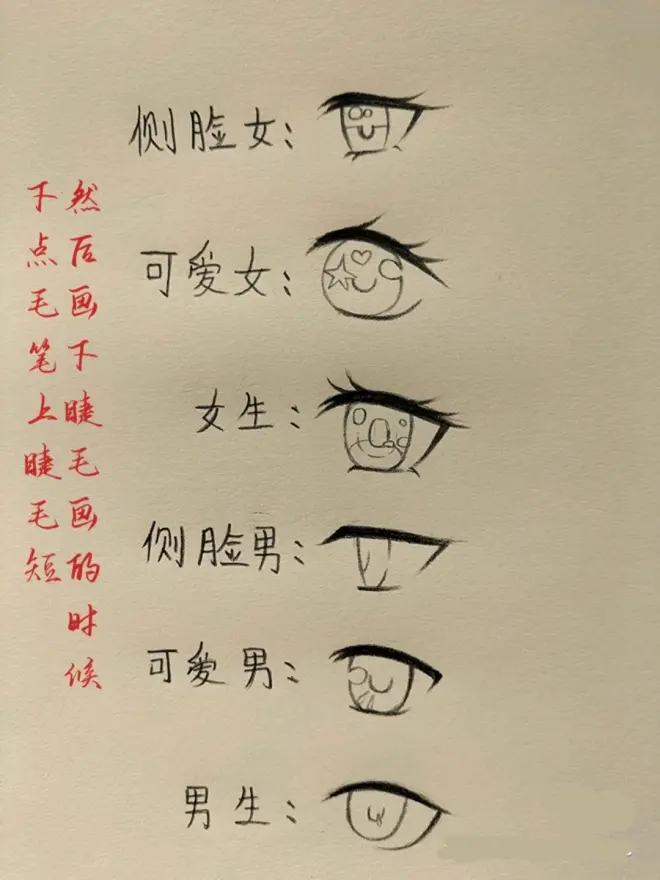 然后画下睫毛画的时候
下点毛笔上睫毛短
侧脸女：
可爱女：
女生：
侧脸男：
可爱男：
男生：